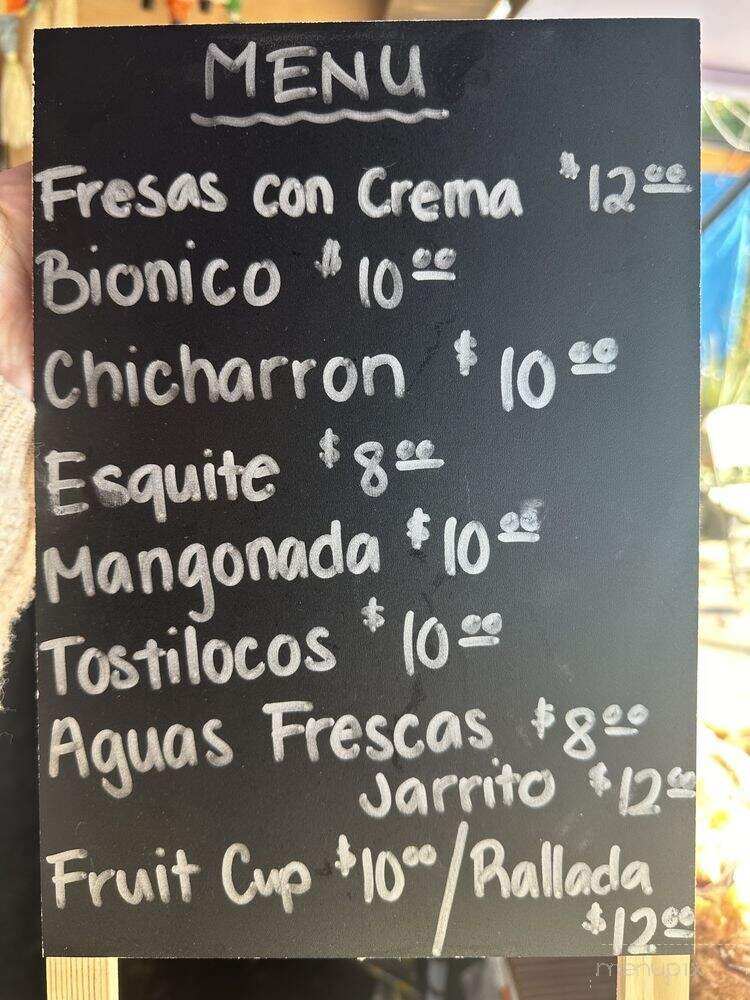 MENU
Fresas con Crema $12.00
Bionico $10.00
Chicharron $10.00
Esquite $8.00
Mangonada $10.00
Tostilocos $10.00
Aguas Frescas $8.00
Jarrito $12.00
Fruit Cup $10.00/Rallada
$12.00
menupix